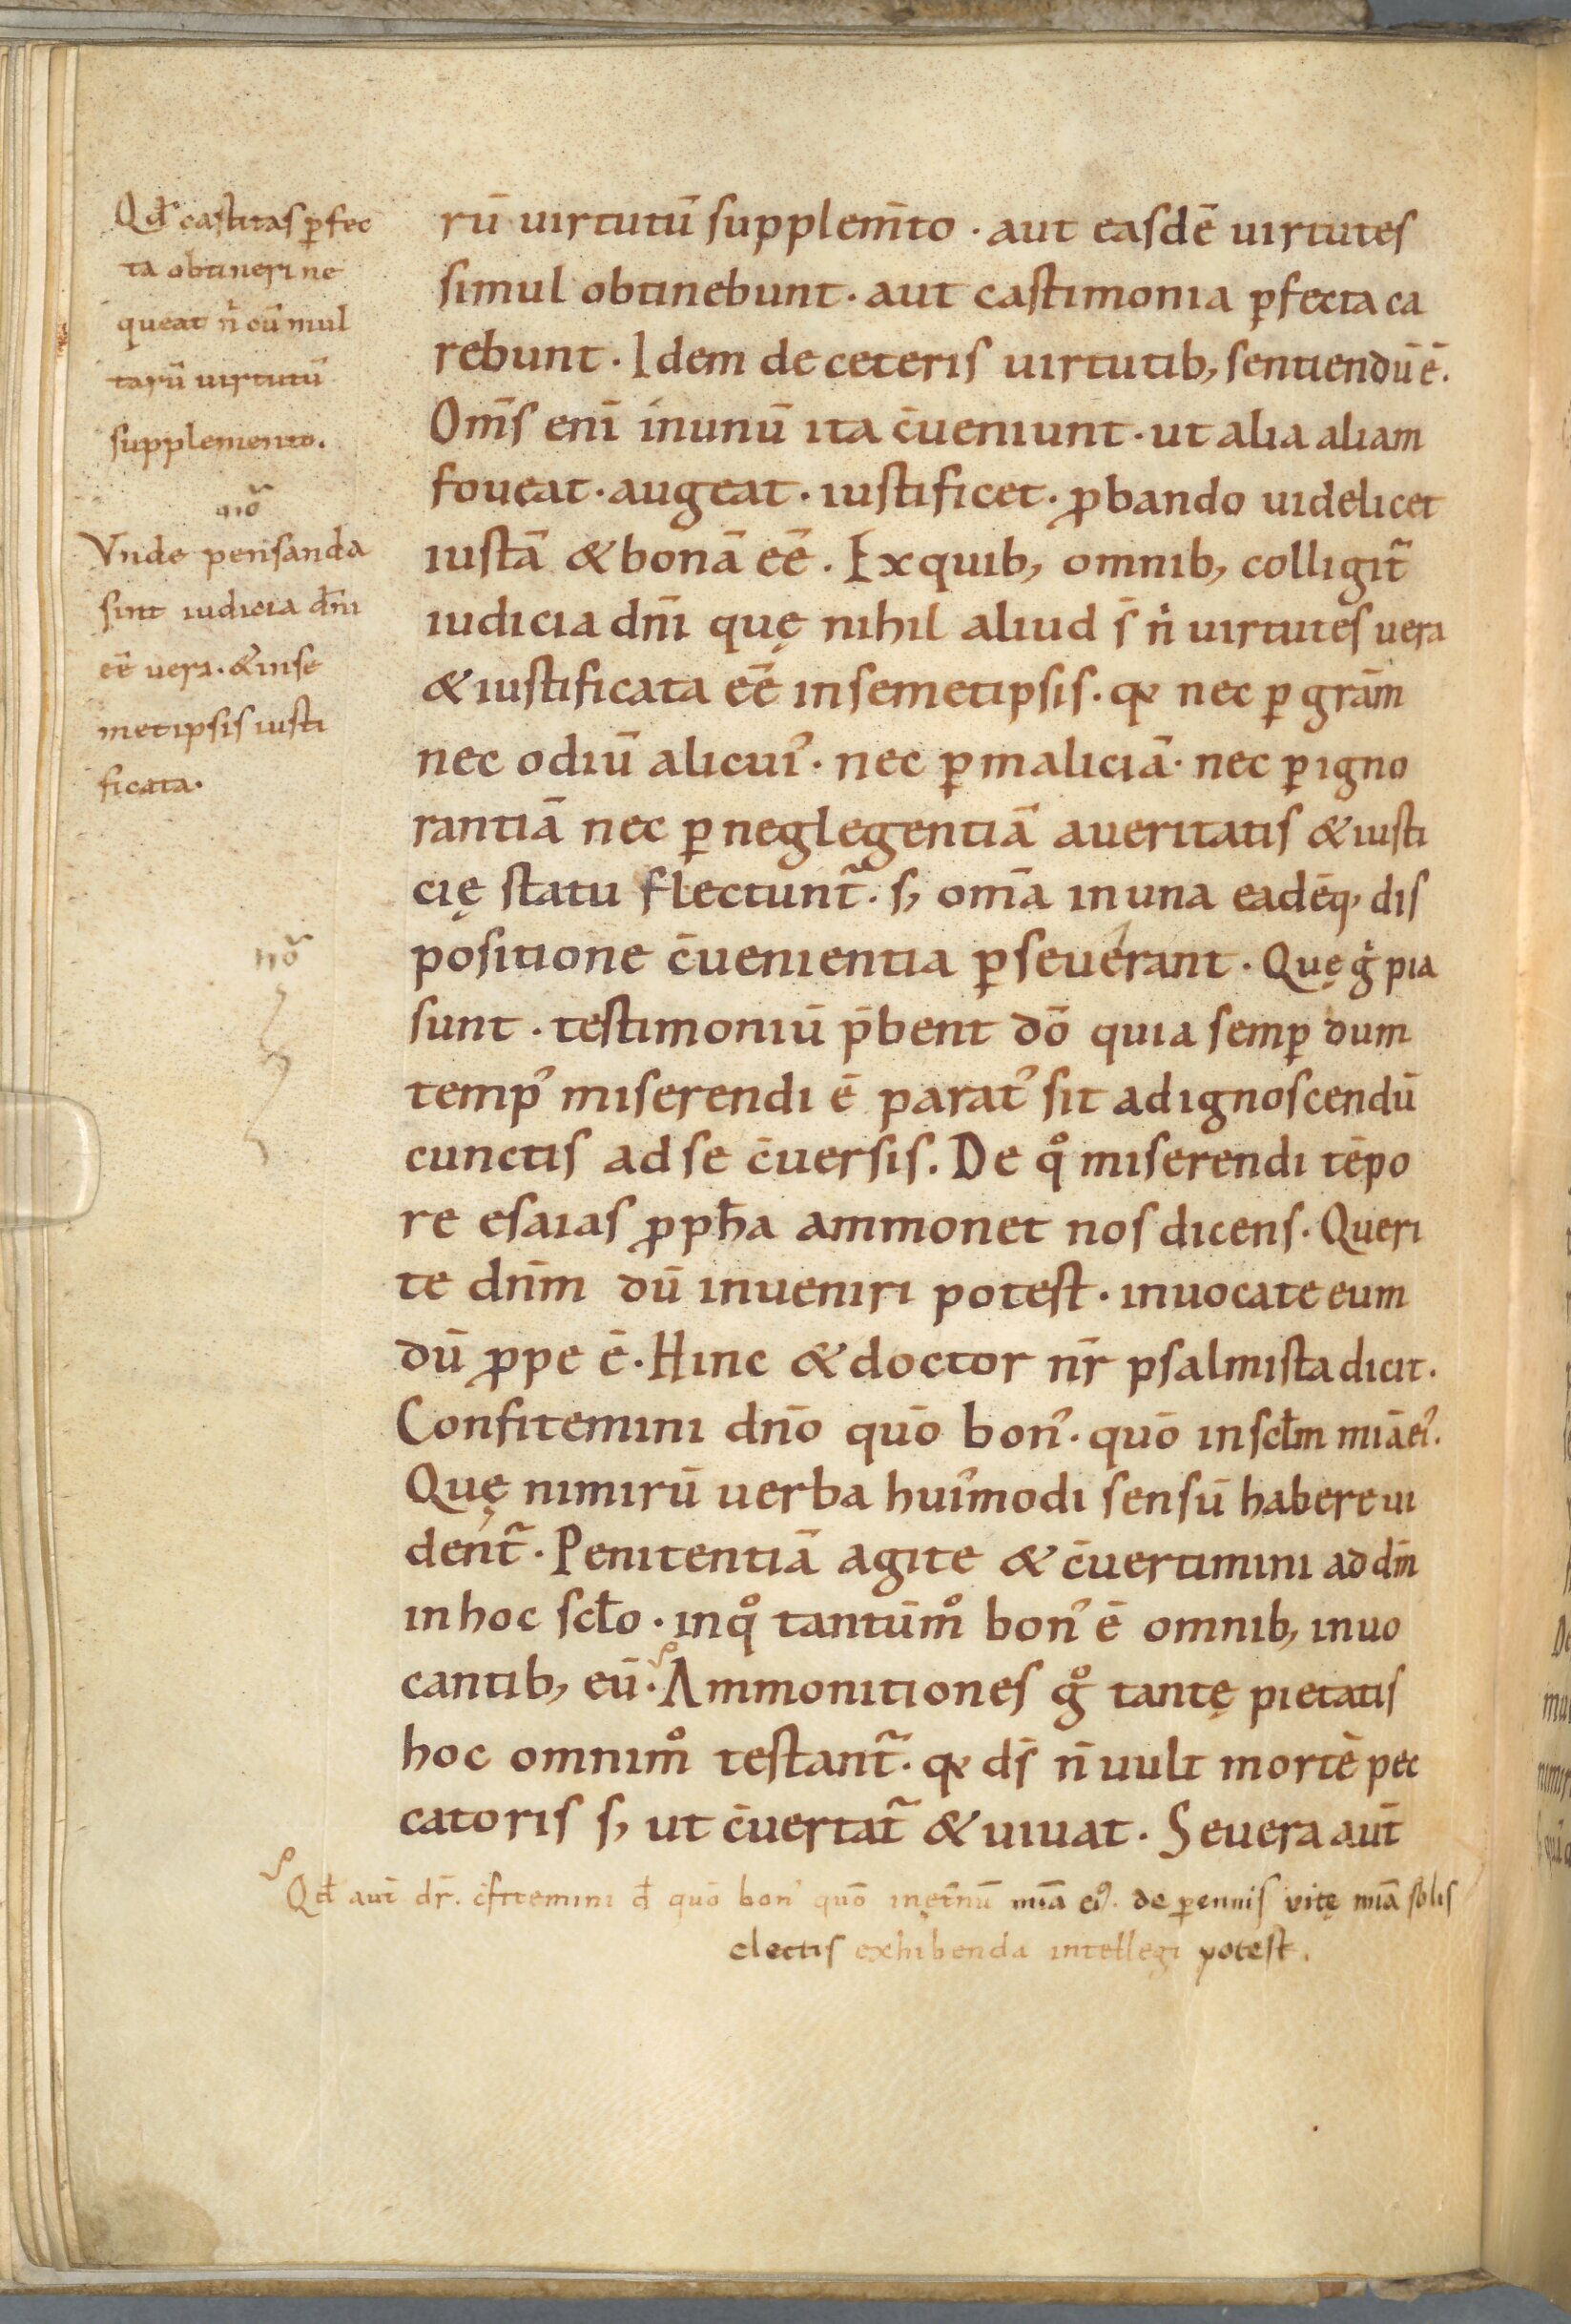 Qđ castitas ꝑfec
ta obtineri ne
queat n̄ cū mul
tarū uirtutū
supplemento.
nō
Vnde pensanda
sint iudicia dn̄i
eē uera. & inse
metipsis iusti
ficata.
nō
rū uirtutū supplem̄to · aut easdē uirtutes
simul obtinebunt · aut castimonia ꝑfecta ca
rebunt · Idem de ceteris uirtutib; sentiendū ē.
Om̄s enī inunū ita c̄ueniunt · ut alia aliam
foueat · augeat · iustificet · ꝓbando uidelicet
iustā & bonā eē . Ex quib; omnib; colligit᷑
iudicia dn̄i quę nihil aliud s̄ nͥ uirtutes uera
& iustificata eē insemetipsis · qꝛ nec ꝑ grām
nec odiū alicuiꝰ · nec ꝑ maliciā · nec ꝑ igno
rantiā nec ꝑ neglegentiā aueritatis & iusti
cię statu flectunt᷑ · s; om̄a inuna eadēq; dis
positione c̄uenientia ꝑseuerant · Quę gͥ pia
sunt · testimoniū p̄bent dō quia semꝑ dum
tempꝰ miserendi ē paratꝰ sit ad ignoscendū
cunctis adse c̄uersis . De qͦ miserendi tēpo
re esaias ꝓpħa ammonet nos dicens · Queri
te dn̄m dū inueniri potest · inuocate eum
dū ꝓpe ē · Hinc & doctor nr̄ psalmista dicit ·
Confitemini dn̄o quō bonꝰ · quō inscłm mīa eiꝰ.
Quę nimirū uerba huiꝰmodi sensū habere ui
dent᷑ · Penitentiā agite & c̄uertimini ad dm̄
inhoc scło · inqͦ tantūmͦ bonꝰ ē omnib; inuo
cantib; eū · Ammonitiones gͦ tantę pietatis
hoc omnimͦ testant᷑ · qꝛ ds̄ n̄ uult mortē pec
catoris s; ut c̄uertat᷑ & uiuat · Seuera aut̄
Qđ aut̄ dr̄. c̄fitemini đ quō bonꝰ quō inęt̄nū mīa eiꝰ. de ꝑennis vitę mīa solis
electis exhibenda intellegi potest.